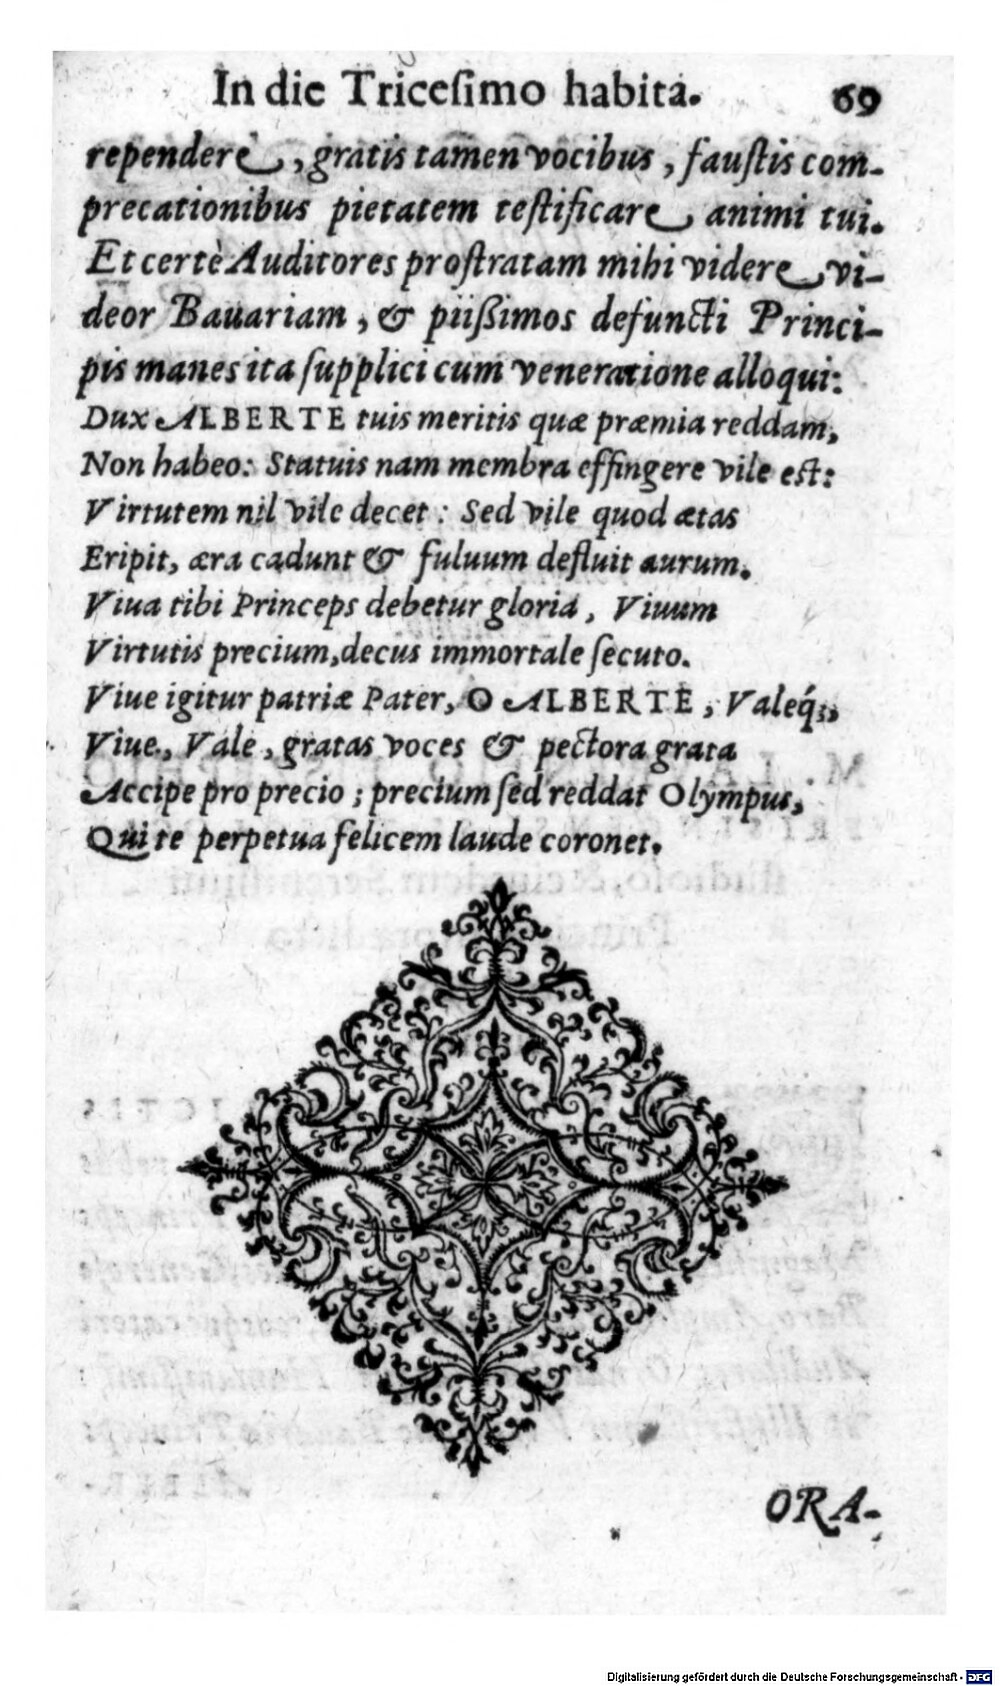 In die Triceſimo habita. 69
rependere, gratis tamen vocibus, fauſtis com-
precationibus pietatem teſtificare animi tui.
Et certè Auditores proſtratam mihi videre vi-
deor Bauariam, & piißimos defuncti Princi-
pis manes ita ſupplici cum veneratione alloqui:
Dux ALBERTE tuis meritis quæ præmia reddam,
Non habeo: Statuis nam membra effingere vile eſt:
Virtutem nil vile decet: Sed vile quod ætas
Eripit, æra cadunt & fuluum defluit aurum.
Viua tibi Princeps debetur gloria, Viuum
Virtutis precium, decus immortale ſecuto.
Viue igitur patriæ Pater, O ALBERTE, Valeq́;,
Viue, Vale, gratas voces & pectora grata
Accipe pro precio; precium ſed reddat Olympus,
Qui te perpetua felicem laude coronet.
ORA-
Digitalisierung gefördert durch die Deutsche Forschungsgemeinschaft - DFG